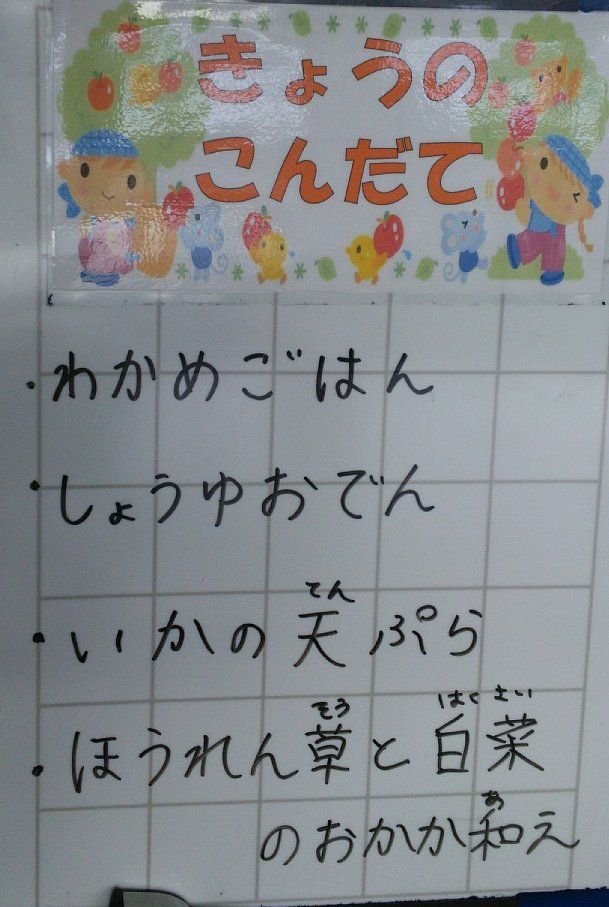 きょうの
こんだて
・わかめごはん
・しょうゆおでん
てん
・いかの天ぷら
そう はくさい
・ほうれん草と白菜
あ
のおかか和え